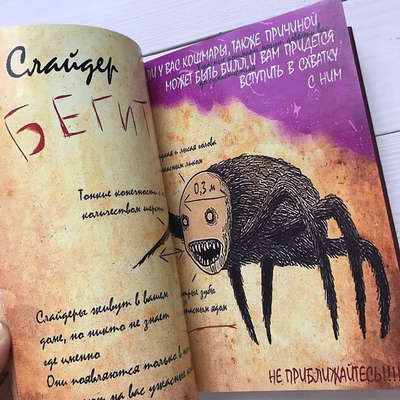 Слайдер
БЕГИТ
Тонкие конечности с
количеством шерсти
Слайдеры живут в вашем
доме, но никто не знает
где именно
Они появляются только в
на вас ужасные
ЛИ У ВАС КОШМАРЫ, ТАКЖЕ ПРИЧИНОЙ,
МОЖЕТ БЫТЬ БИЛЛ, И ВАМ ПРИДЕТСЯ
ВСТУПИТЬ В СХВАТКУ
С НИМ
и лысая голова
0,3 м
зубы
ядом
НЕ ПРИБЛИЖАЙТЕСЬ!!!!